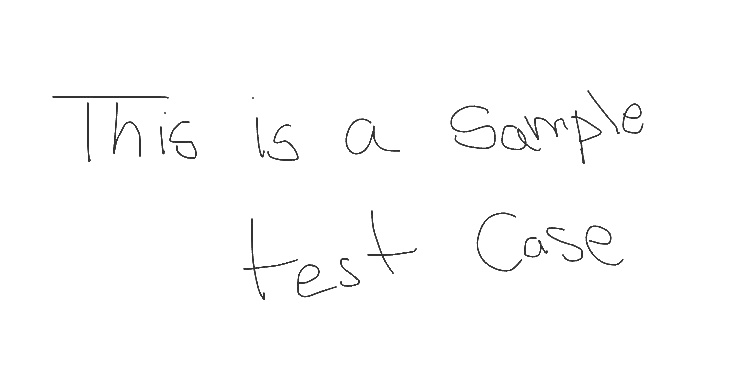 This is a Sample
test Case